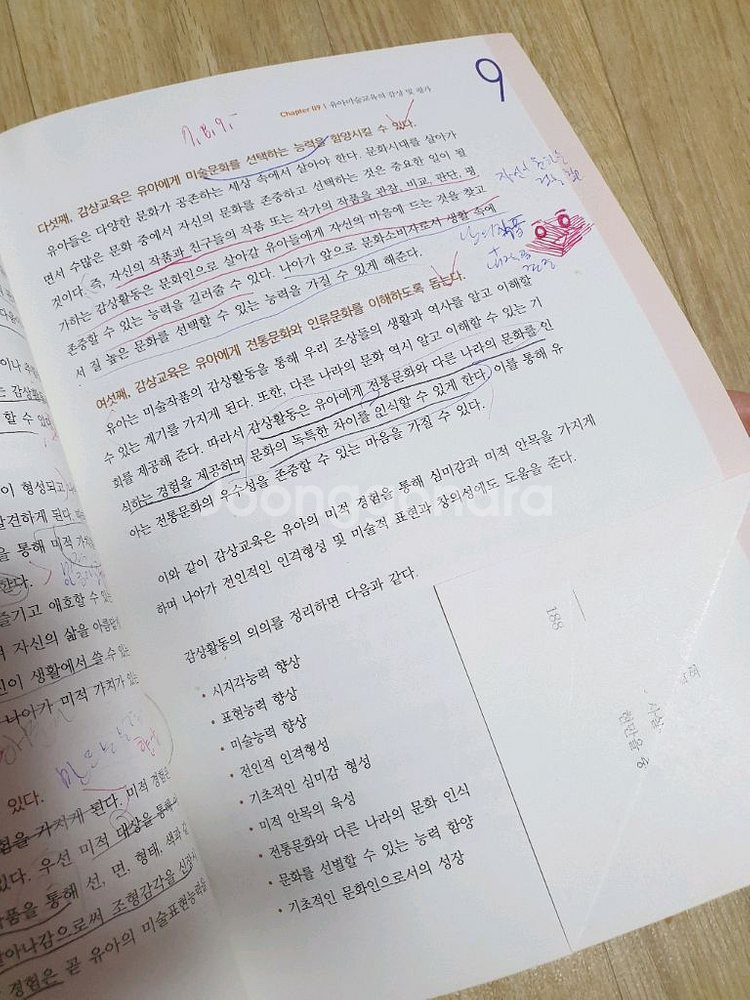 9
Chapter 09 | 유아미술교육의 감상 및 평가
7. 8. 9. -
다섯째, 감상교육은 유아에게 미술문화를 선택하는 능력을 함양시킬 수 있다.
유아들은 다양한 문화가 공존하는 세상 속에서 살아야 한다. 문화시대를 살아가
면서 수많은 문화 중에서 자신의 문화를 존중하고 선택하는 것은 중요한 일이 될
것이다. 즉, 자신의 작품과 친구들의 작품 또는 작가의 작품을 관찰, 비교, 판단, 평
가하는 감상활동은 문화인으로 살아갈 유아들에게 자신의 마음에 드는 것을 찾고
존중할 수 있는 능력을 길러줄 수 있다. 나아가 앞으로 문화소비자로서 생활 속에
서 질 높은 문화를 선택할 수 있는 능력을 가질 수 있게 해준다.
여섯째, 감상교육은 유아에게 전통문화와 인류문화를 이해하도록 돕는다.
유아는 미술작품의 감상활동을 통해 우리 조상들의 생활과 역사를 알고 이해할
수 있는 계기를 가지게 된다. 또한, 다른 나라의 문화 역시 알고 이해할 수 있는 기
회를 제공해 준다. 따라서 감상활동은 유아에게 전통문화와 다른 나라의 문화를 인
식하는 경험을 제공하며 문화의 독특한 차이를 인식할 수 있게 한다. 이를 통해 유
아는 전통문화의 우수성을 존중할 수 있는 마음을 가질 수 있다.
이와 같이 감상교육은 유아의 미적 경험을 통해 심미감과 미적 안목을 가지게
하며 나아가 전인적인 인격형성 및 미술적 표현과 창의성에도 도움을 준다.
감상활동의 의의를 정리하면 다음과 같다.
• 시지각능력 향상
• 표현능력 향상
• 미술능력 향상
• 전인적 인격형성
• 기초적인 심미감 형성
• 미적 안목의 육성
• 전통문화와 다른 나라의 문화 인식
• 문화를 선별할 수 있는 능력 함양
• 기초적인 문화인으로서의 성장
188
Joonggonara
이 형성되고
발견하게 된다.
을 통해 미적 가치
한다.
즐기고 애호할 수 있는
자신의 삶을 아름답
신이 생활에서 쓸 수 있는
나아가 미적 가치가 있는
있다.
험을 가지게 된다. 미적 경험은
있다. 우선 미적 대상을 통해
작품을 통해 선, 면, 형태, 색과
아나감으로써 조형감각을
경험은 곧 유아의 미술표현능력을